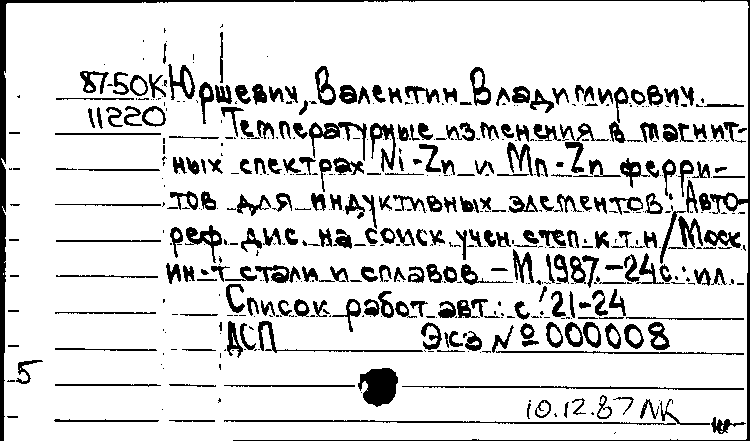 87-50К Юршевич, Валентин Владимирович.
11220 Температурные изменения в магнит-
ных спектрах Ni-Zn и Mn-Zn ферри-
тов для индуктивных элементов: Авто-
реф. дис. на соиск. учен. степ. к.т.н / Моск.
ин-т стали и сплавов. - М. 1987. - 24с.: ил.
Список работ авт.: с. 21-24
ДСП Экз № 000008
5
10.12.87 ЛК